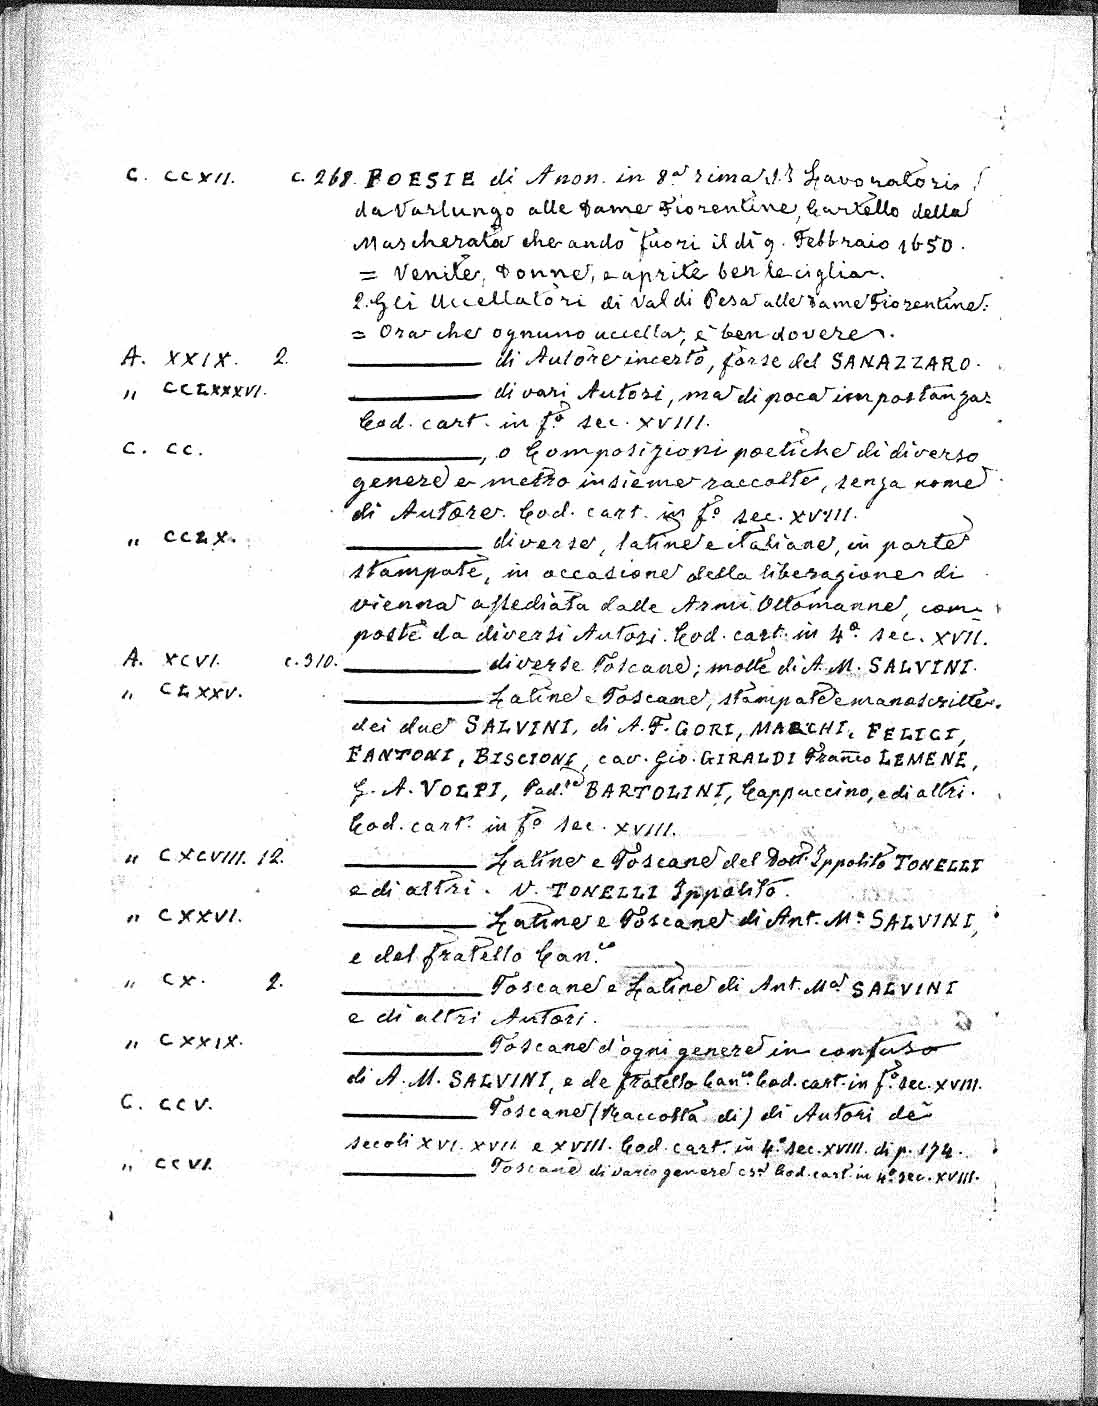 C. CCXII. c. 268. POESIE di Anon. in 8.a rima 1.a Lavoratori
da Varlungo alle Dame Fiorentine, Cartello della
Mascherata che andò fuori il dì 9. Febbraio 1650.
= Venite, Donne, e aprite ben le ciglia.
2. Gli Uccellatori di Val di Pesa alle Dame Fiorentine:
= Ora che ognuno uccella, è ben dovere.
A. XXIX. 2. ——— di Autore incerto, forse del SANAZZARO.
„ CCLXXXVI. ——— di vari Autori, ma di poca importanza.
Cod. cart. in f.o sec. XVIII.
C. CC. ———, o Composizioni poetiche di diverso
genere e metro insieme raccolte, senza nome
di Autore. Cod. cart. in f.o sec. XVIII.
„ CCLX. ——— diverse, latine e italiane, in parte
stampate, in occasione della liberazione di
Vienna assediata dalle Armi Ottomanne, com-
poste da diversi Autori. Cod. cart. in 4.o sec. XVII.
A. XCVI. c. 310. ——— diverse Toscane; molte di A. M. SALVINI.
„ CLXXV. ——— Latine e Toscane, stampate e manoscritte
dei due SALVINI, di A. F. GORI, MARCHI, FELICI,
FANTONI, BISCIONI, cav. Gio. GIRALDI Franco LEMENE,
G. A. VOLPI, Pad.re BARTOLINI, Cappuccino, e di altri.
Cod. cart. in f.o sec. XVIII.
„ CXCVIII. 12. ——— Latine e Toscane del Dott. Ippolito TONELLI
e di altri. V. TONELLI Ippolito.
„ CXXVI. ——— Latine e Toscane di Ant. M.a SALVINI,
e del fratello Can.co
„ CX. 2. ——— Toscane e Latine di Ant. Ma SALVINI
e di altri Autori.
„ CXXIX. ——— Toscane d'ogni genere in confuso
di A. M. SALVINI, e de fratello Can.co Cod. cart. in f.o sec. XVIII.
C. CCV. ——— Toscane (Raccolta di) di Autori de'
secoli XVI. XVII. e XVIII. Cod. cart. in 4.o sec. XVIII. di p. 174.
„ CCVI. ——— Toscane di vario genere Cod. cart. in 4.o sec. XVIII.